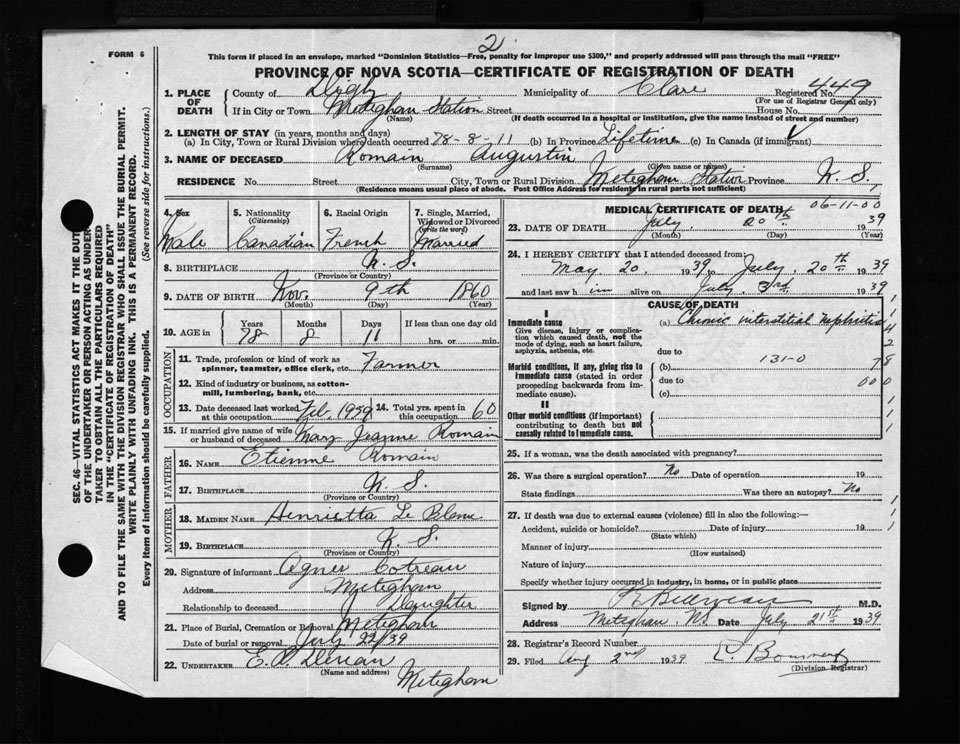 2
FORM 6
This form if placed in an envelope, marked "Dominion Statistics—Free, penalty for improper use $300," and properly addressed will pass through the mail "FREE"
PROVINCE OF NOVA SCOTIA—CERTIFICATE OF REGISTRATION OF DEATH
1. PLACE OF DEATH County of Digby Municipality of Clare Registered No. 449
(For use of Registrar General only)
If in City or Town Meteghan Station Street House No.
(Name) (If death occurred in a hospital or institution, give the name instead of street and number)
2. LENGTH OF STAY (in years, months and days)
(a) In City, Town or Rural Division where death occurred 78-8-11 (b) In Province Lifetime (c) In Canada (if immigrant)
3. NAME OF DECEASED Romain Augustin
(Surname) (Given name or names)
RESIDENCE No. Street City, Town or Rural Division Meteghan Station Province N.S.
(Residence means usual place of abode. Post Office Address for residents in rural parts not sufficient)
SEC. 46—VITAL STATISTICS ACT MAKES IT THE DUTY
OF THE UNDERTAKER OR PERSON ACTING AS UNDER-
TAKER TO OBTAIN ALL THE PARTICULARS REQUIRED
IN THE "CERTIFICATE OF REGISTRATION OF DEATH"
AND TO FILE THE SAME WITH THE DIVISION REGISTRAR WHO SHALL ISSUE THE BURIAL PERMIT.
WRITE PLAINLY WITH UNFADING INK. THIS IS A PERMANENT RECORD.
Every item of information should be carefully supplied. (See reverse side for instructions.)
4. Sex Male
5. Nationality (Citizenship) Canadian
6. Racial Origin French
7. Single, Married, Widowed or Divorced (write the word) Married
8. BIRTHPLACE N.S.
(Province or Country)
9. DATE OF BIRTH Nov. 9th 1860
(Month) (Day) (Year)
10. AGE in Years 78 Months 8 Days 11 If less than one day old hrs. or min.
OCCUPATION
11. Trade, profession or kind of work as spinner, teamster, office clerk, etc. Farmer
12. Kind of industry or business, as cotton-mill, lumbering, bank, etc.
13. Date deceased last worked at this occupation Feb. 1939 14. Total yrs. spent in this occupation 60
15. If married give name of wife or husband of deceased Mary Jeanne Romain
FATHER
16. NAME Etienne Romain
17. BIRTHPLACE N.S.
(Province or Country)
MOTHER
18. MAIDEN NAME Henrietta Le Blanc
19. BIRTHPLACE N.S.
(Province or Country)
20. Signature of informant Agnes Cotreau
Address Meteghan
Relationship to deceased Daughter
21. Place of Burial, Cremation or Removal Meteghan
Date of burial or removal July 22/39
22. UNDERTAKER
(Name and address) Meteghan
MEDICAL CERTIFICATE OF DEATH 06-11-00
23. DATE OF DEATH July 20th 1939
(Month) (Day) (Year)
24. I HEREBY CERTIFY that I attended deceased from:
May 20. 1939 to July. 20th 1939
and last saw him alive on July. 3rd 1939
CAUSE OF DEATH
I
Immediate cause (a) Chronic interstitial nephritis
Give disease, injury or complication which caused death, not the mode of dying, such as heart failure, asphyxia, asthenia, etc.
due to
131-0
Morbid conditions, if any, giving rise to immediate cause (stated in order proceeding backwards from immediate cause). (b)
78
due to 000
(c)
II
Other morbid conditions (if important) contributing to death but not causally related to immediate cause.
25. If a woman, was the death associated with pregnancy?
26. Was there a surgical operation? No Date of operation 19
State findings Was there an autopsy? No
27. If death was due to external causes (violence) fill in also the following:—
Accident, suicide or homicide? Date of injury 19
(State which)
Manner of injury
(How sustained)
Nature of injury
Specify whether injury occurred in industry, in home, or in public place
Signed by M.D.
Address Meteghan. N.S. Date July 21st 1939
28. Registrar's Record Number
29. Filed Aug 2nd 1939
(Division Registrar)